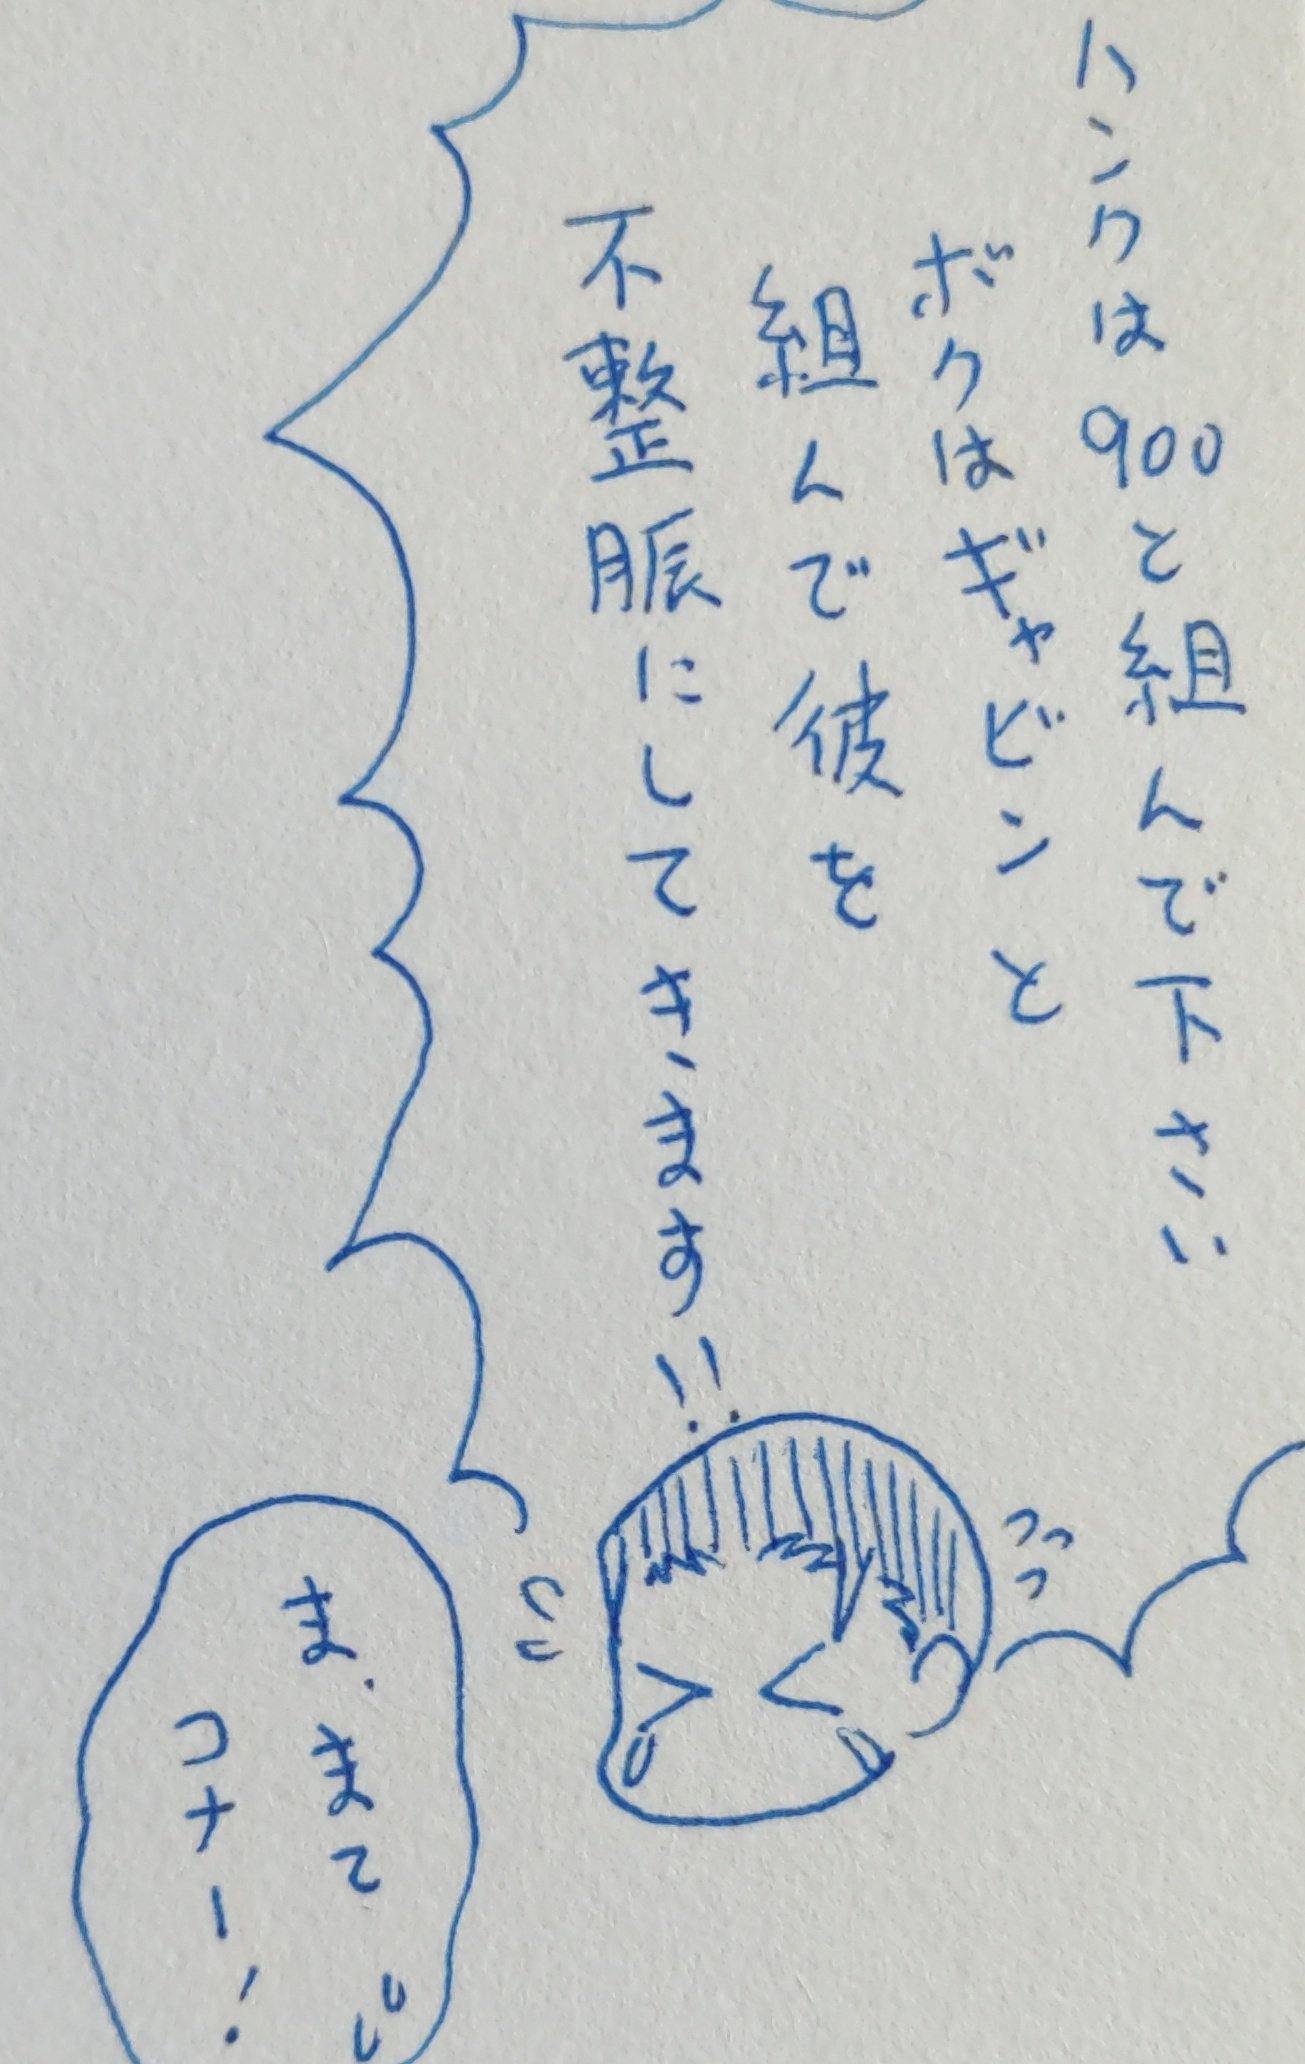 ハンクは900と組んで下さい
ボクはギャビンと
組んで彼を
不整脈にしてきます!!
ま、まて
コナー!